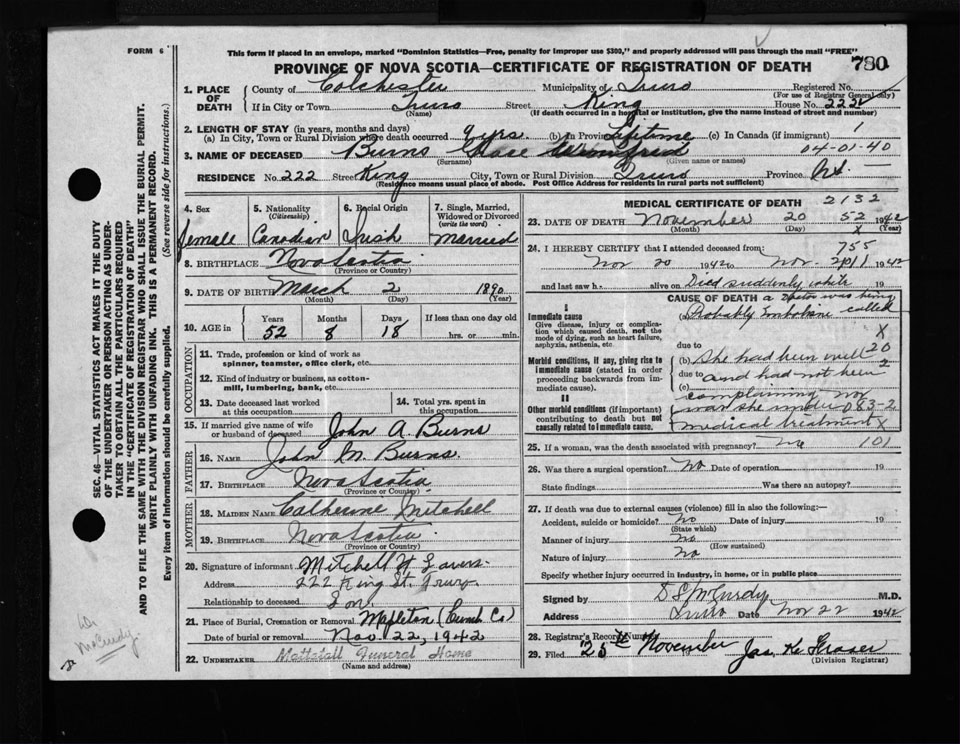 FORM 6
This form if placed in an envelope, marked "Dominion Statistics—Free, penalty for improper use $300," and properly addressed will pass through the mail "FREE"
PROVINCE OF NOVA SCOTIA—CERTIFICATE OF REGISTRATION OF DEATH
780
1. PLACE OF DEATH
County of Colchester Municipality of Truro Registered No.
(For use of Registrar General only)
If in City or Town Truro Street King House No. 222
(Name) (If death occurred in a hospital or institution, give the name instead of street and number)
2. LENGTH OF STAY (in years, months and days)
(a) In City, Town or Rural Division where death occurred 9 yrs (b) In Province Lifetime (c) In Canada (if immigrant) 1
3. NAME OF DECEASED Burns Grace Winnifred 04-01-40
(Surname) (Given name or names)
RESIDENCE No. 222 Street King City, Town or Rural Division Truro Province N.S.
(Residence means usual place of abode. Post Office Address for residents in rural parts not sufficient)
4. Sex
female
5. Nationality (Citizenship)
Canadian
6. Racial Origin
Irish
7. Single, Married, Widowed or Divorced (write the word)
Married
8. BIRTHPLACE Nova Scotia
(Province or Country)
9. DATE OF BIRTH March 2 1890
(Month) (Day) (Year)
10. AGE in
Years Months Days If less than one day old
52 8 18 hrs. or min.
OCCUPATION
11. Trade, profession or kind of work as spinner, teamster, office clerk, etc.
12. Kind of industry or business, as cotton-mill, lumbering, bank, etc.
13. Date deceased last worked at this occupation
14. Total yrs. spent in this occupation
15. If married give name of wife or husband of deceased John A. Burns
FATHER
16. NAME John M. Burns
17. BIRTHPLACE Nova Scotia
(Province or Country)
MOTHER
18. MAIDEN NAME Catherine Mitchell
19. BIRTHPLACE Nova Scotia
(Province or Country)
20. Signature of informant Mitchell H.
Address 222 King St. Truro
Relationship to deceased Son
21. Place of Burial, Cremation or Removal Mapleton (Cumb Co)
Date of burial or removal Nov. 22, 1942
22. UNDERTAKER Mattatall Funeral Home
(Name and address)
MEDICAL CERTIFICATE OF DEATH 2132
23. DATE OF DEATH November 20 52 1942
(Month) (Day) X (Year)
24. I HEREBY CERTIFY that I attended deceased from: 755
Nov 20 1942 to Nov. 20 1942
and last saw h alive on Died suddenly while 19
CAUSE OF DEATH a doctor was being
I
Immediate cause
Give disease, injury or complication which caused death, not the mode of dying, such as heart failure, asphyxia, asthenia, etc.
(a) Probably Embolism called
X
due to 20
Morbid conditions, if any, giving rise to immediate cause (stated in order proceeding backwards from immediate cause).
(b) She had been well
due to and had not been 2
(c) complaining nor
II
Other morbid conditions (if important) contributing to death but not causally related to immediate cause.
was she under 083-2
medical treatment X
25. If a woman, was the death associated with pregnancy? No 101
26. Was there a surgical operation? No Date of operation 19
State findings Was there an autopsy?
27. If death was due to external causes (violence) fill in also the following:—
Accident, suicide or homicide? No Date of injury 19
(State which)
Manner of injury No
(How sustained)
Nature of injury No
Specify whether injury occurred in industry, in home, or in public place
Signed by D S McCurdy M.D.
Address Truro Date Nov 22 1942
28. Registrar's Record Number
29. Filed 25th November Jas. K. Fraser
(Division Registrar)
SEC. 46—VITAL STATISTICS ACT MAKES IT THE DUTY
OF THE UNDERTAKER OR PERSON ACTING AS UNDER-
TAKER TO OBTAIN ALL THE PARTICULARS REQUIRED
IN THE "CERTIFICATE OF REGISTRATION OF DEATH"
AND TO FILE THE SAME WITH THE DIVISION REGISTRAR WHO SHALL ISSUE THE BURIAL PERMIT.
WRITE PLAINLY WITH UNFADING INK. THIS IS A PERMANENT RECORD.
Every item of information should be carefully supplied. (See reverse side for instructions.)
Dr McCurdy